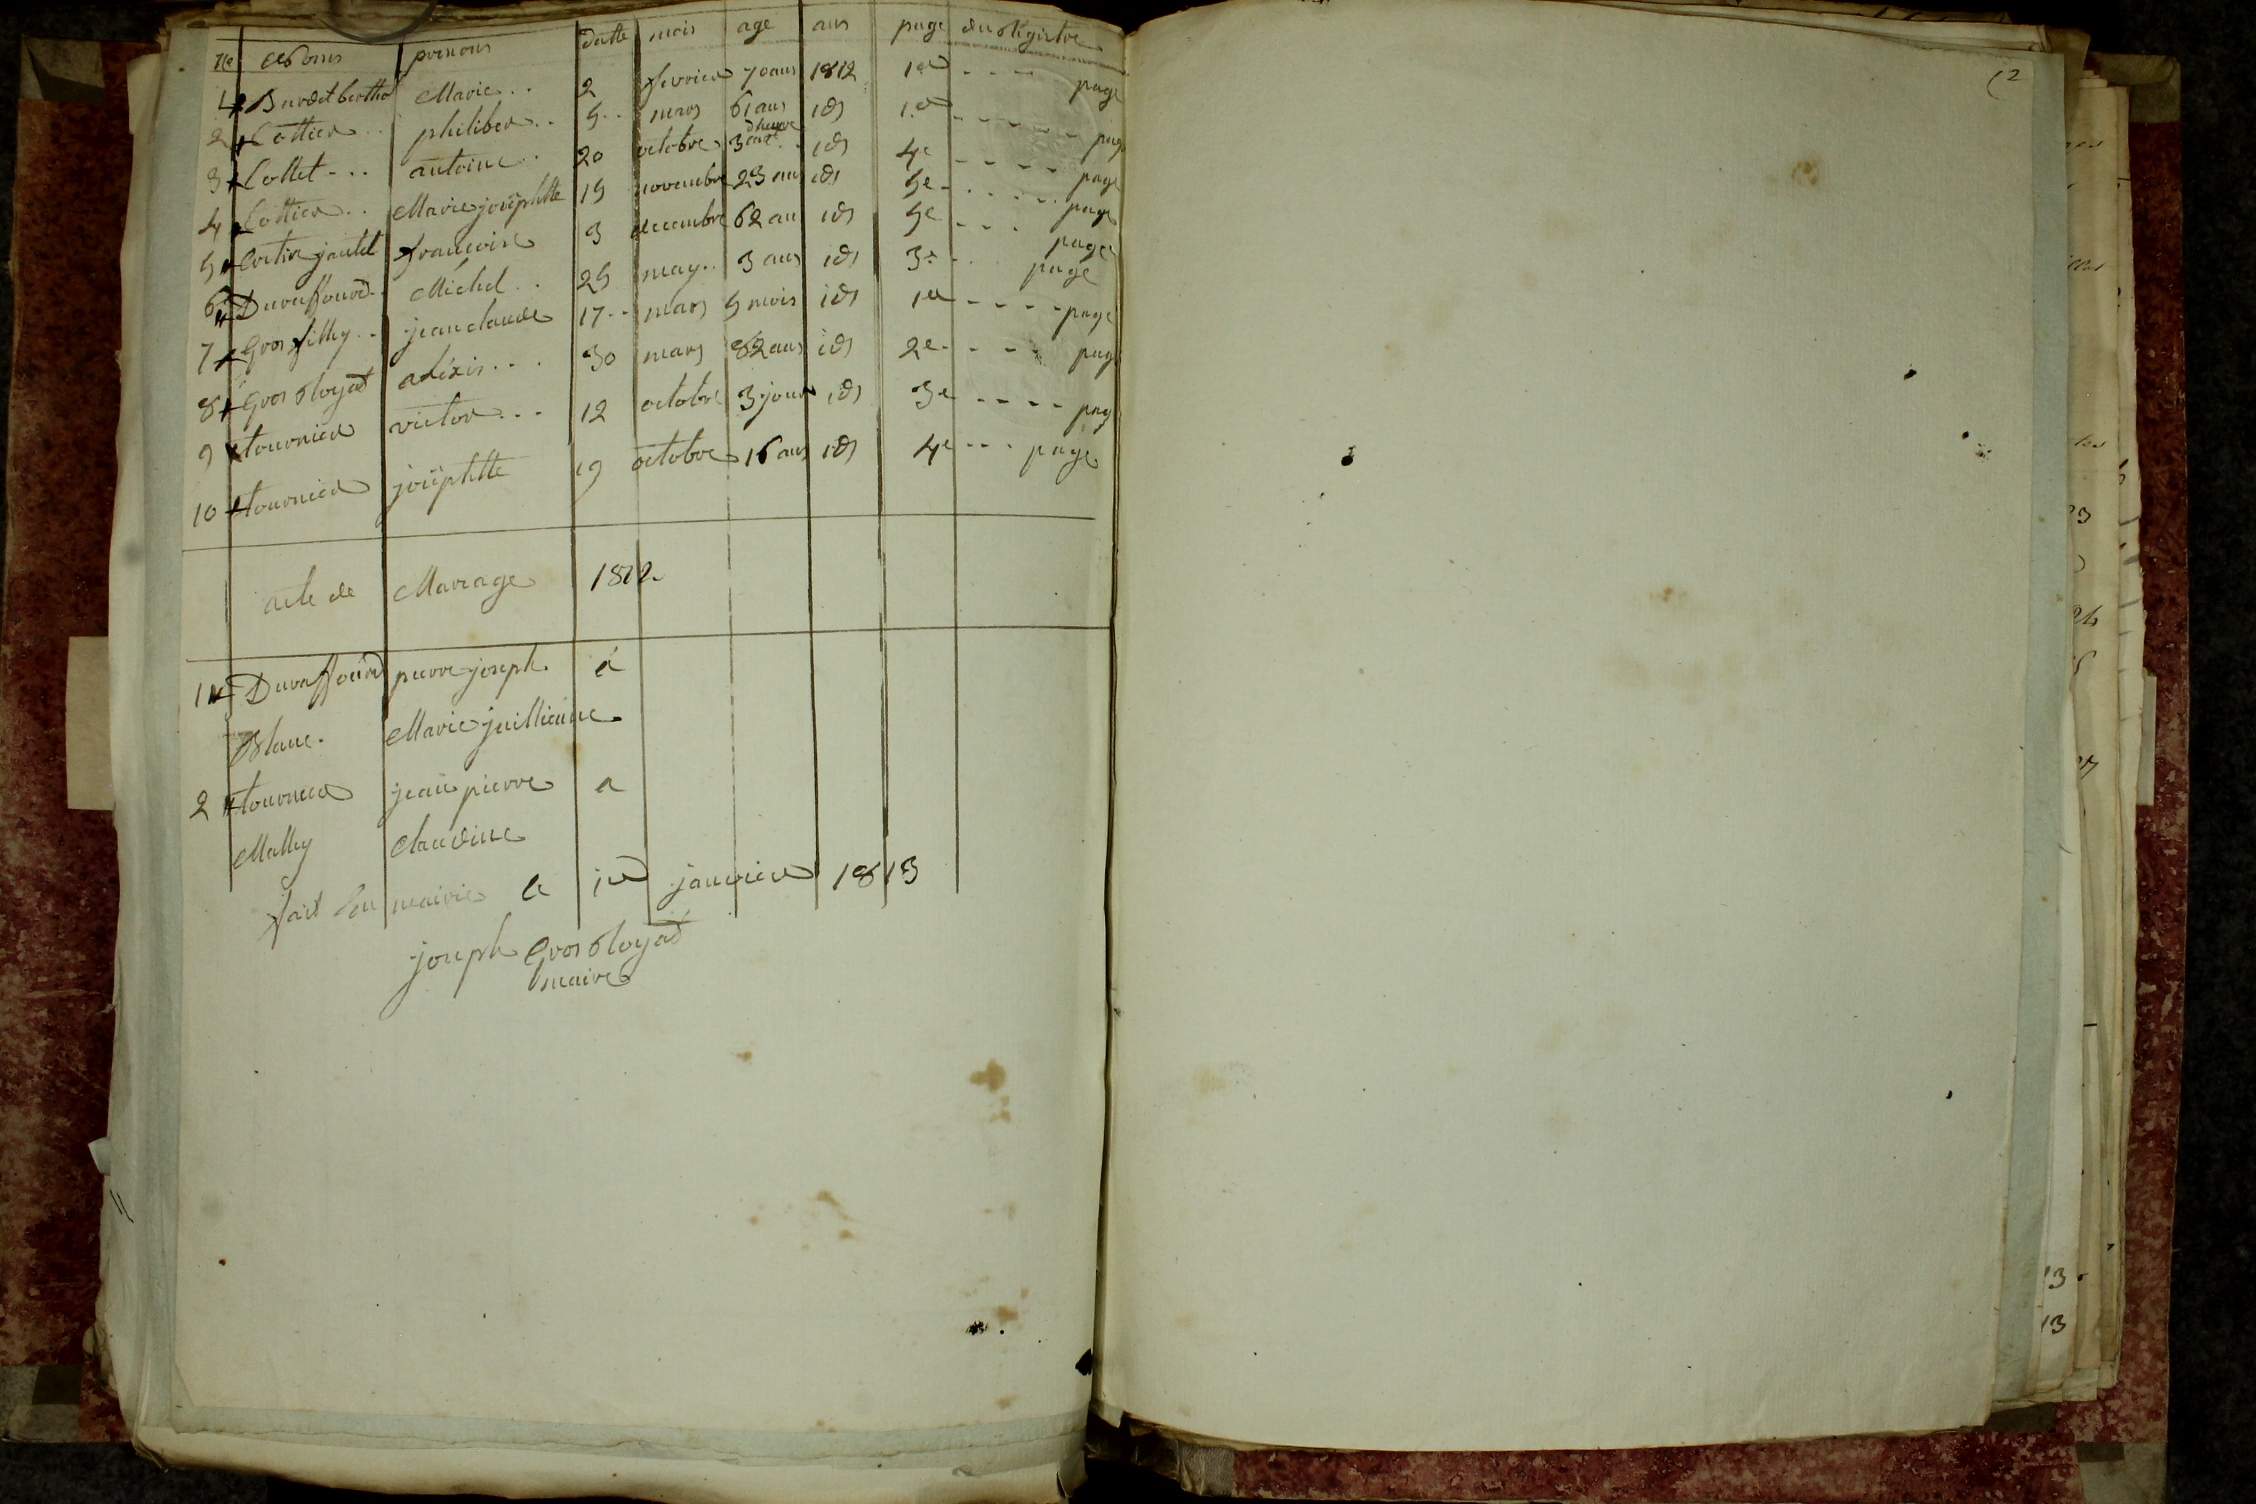 No noms prenoms datte mois age ans page du Registre
1 Burdet berthod Marie 2 fevrier 70 ans 1812 1er page
2 Cottier philiber 5 mars 61 ans ids 1er page
3 Collet antoine 20 octobre 3 ids 4e page
4 Cottier Marie josephtte 15 novembre 23 ans ids 5e page
5 francoise 3 decembre 62 an ids 5e page
6 Duraffourd Michel 25 may 3 ans ids 3e page
7 Gros filley jean claude 17 mars 5 mois ids 1er page
8 Gros Royat aléxis 30 mars 82 ans ids 2e page
9 tournier victor 12 octobre 3 jour ids 3e pag
10 tournier josephtte 19 octobre 16 ans ids 4e page
acte de Mariage 1812
1 Duraffourd pierre joseph a
Blanc Marie juillienne
2 tournier jean pierre a
Malley Claudine
fait en mairie le 1er janvier 1813
joseph Gros Royat
maire
12